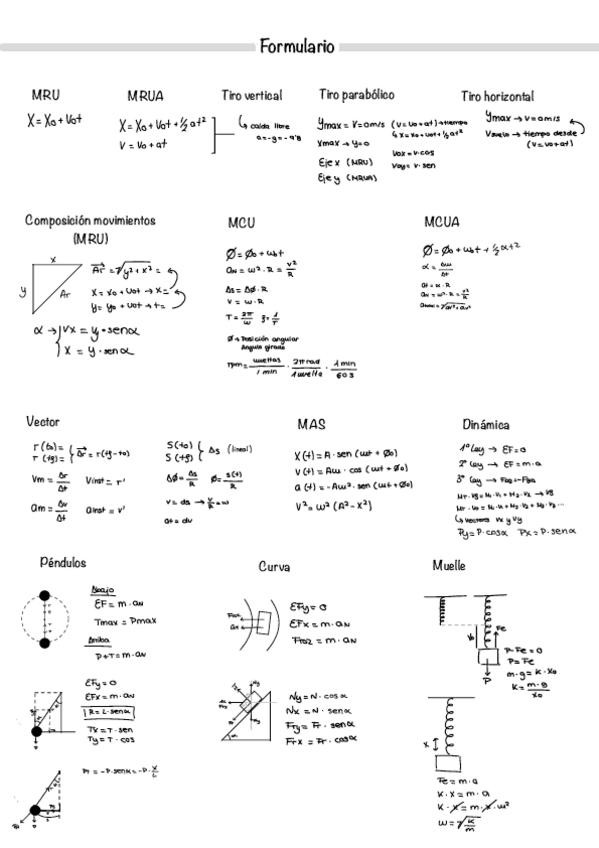 Formulario
MRU
X = X₀ + V₀t
MRUA
X = X₀ + V₀t + ½ at²
V = V₀ + at
Tiro vertical
caida libre
a = -g = -9'8
Tiro parabólico
Ymax = V=0m/s (V = V₀ + at) → tiempo
↳ X = X₀ + V₀t + ½ at²
Xmax → y=0
Eje x (MRU)
Eje y (MRUA)
V₀x = V · cos
V₀y = V · sen
Tiro horizontal
Ymax → V=0m/s
Vsuelo → tiempo desde
(V = V₀ + at)
Composición movimientos
(MRU)
x
y
Ar
Ar = √y² + x² =
X = X₀ + V₀t → X =
y = y₀ + V₀t → t =
α → Vx = y · senα
X = y · senα
MCU
Ø = Ø₀ + ω₀t
aN = ω² · R = V²/R
Δs = ΔØ · R
V = ω · R
T = 2π/ω f = 1/T
Ø → Posición angular
Angulo girado
rpm = vueltas/1 min · 2π rad/1 vuelta · 1 min/60 s
MCUA
Ø = Ø₀ + ω₀t + ½ αt²
α = Δω/Δt
at = α · R
aN = ω² · R = V²/R
Vector
r (t₀) =
r (tf) =
Δr = r(tf-t₀)
Vm = Δr/Δt Vinst = r'
am = Δv/Δt ainst = v'
S(t₀)
S(tf)
Δs (lineal)
ΔØ = Δs/R Ø = s(t)/R
MAS
X(t) = A · sen (ωt + Ø₀)
V(t) = Aω · cos (ωt + Ø₀)
a(t) = -Aω² · sen (ωt + Ø₀)
V² = ω² (A² - X²)
Dinámica
1º Ley → ΣF = 0
2º Ley → ΣF = m · a
3º Ley →
↳ Vectores Vx y Vy
Py = P · cosα Px = P · senα
Péndulos
Abajo
ΣF = m · aN
Tmax = Pmax
Arriba
P + T = m · aN
ΣFy = 0
ΣFx = m · aN
R = L · senα
Tx = T · sen
Ty = T · cos
Pt = -P · senα = -P · X/L
Curva
ΣFy = 0
ΣFx = m · aN
Froz = m · aN
Ny = N · cos α
Nx = N · senα
Fry = Fr · senα
Frx = Fr · cosα
Muelle
Fe
P
P - Fe = 0
P = Fe
m · g = K · X₀
K = m · g/X₀
X
Fe = m · a
K · X = m · a
K · X = m · X · ω²
ω = √K/m